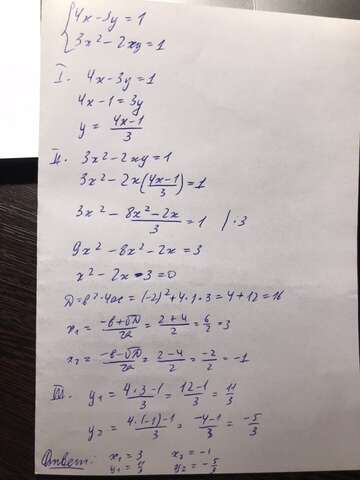 4x-3y=1
3x²-2xy=1
I. 4x-3y=1
4x-1=3y
y = (4x-1)/3
II. 3x²-2xy=1
3x²-2x((4x-1)/3)=1
3x² - (8x²-2x)/3 = 1 /·3
9x²-8x²-2x=3
x²-2x-3=0
D=b²-4ac=(-2)²+4·1·3=4+12=16
x₁ = (-b+√D)/2a = (2+4)/2 = 6/2 = 3
x₂ = (-b-√D)/2a = (2-4)/2 = -2/2 = -1
III. y₁ = (4·3-1)/3 = (12-1)/3 = 11/3
y₂ = (4·(-1)-1)/3 = (-4-1)/3 = -5/3
Ответ: x₁=3 x₂=-1
y₁=11/3 y₂=-5/3